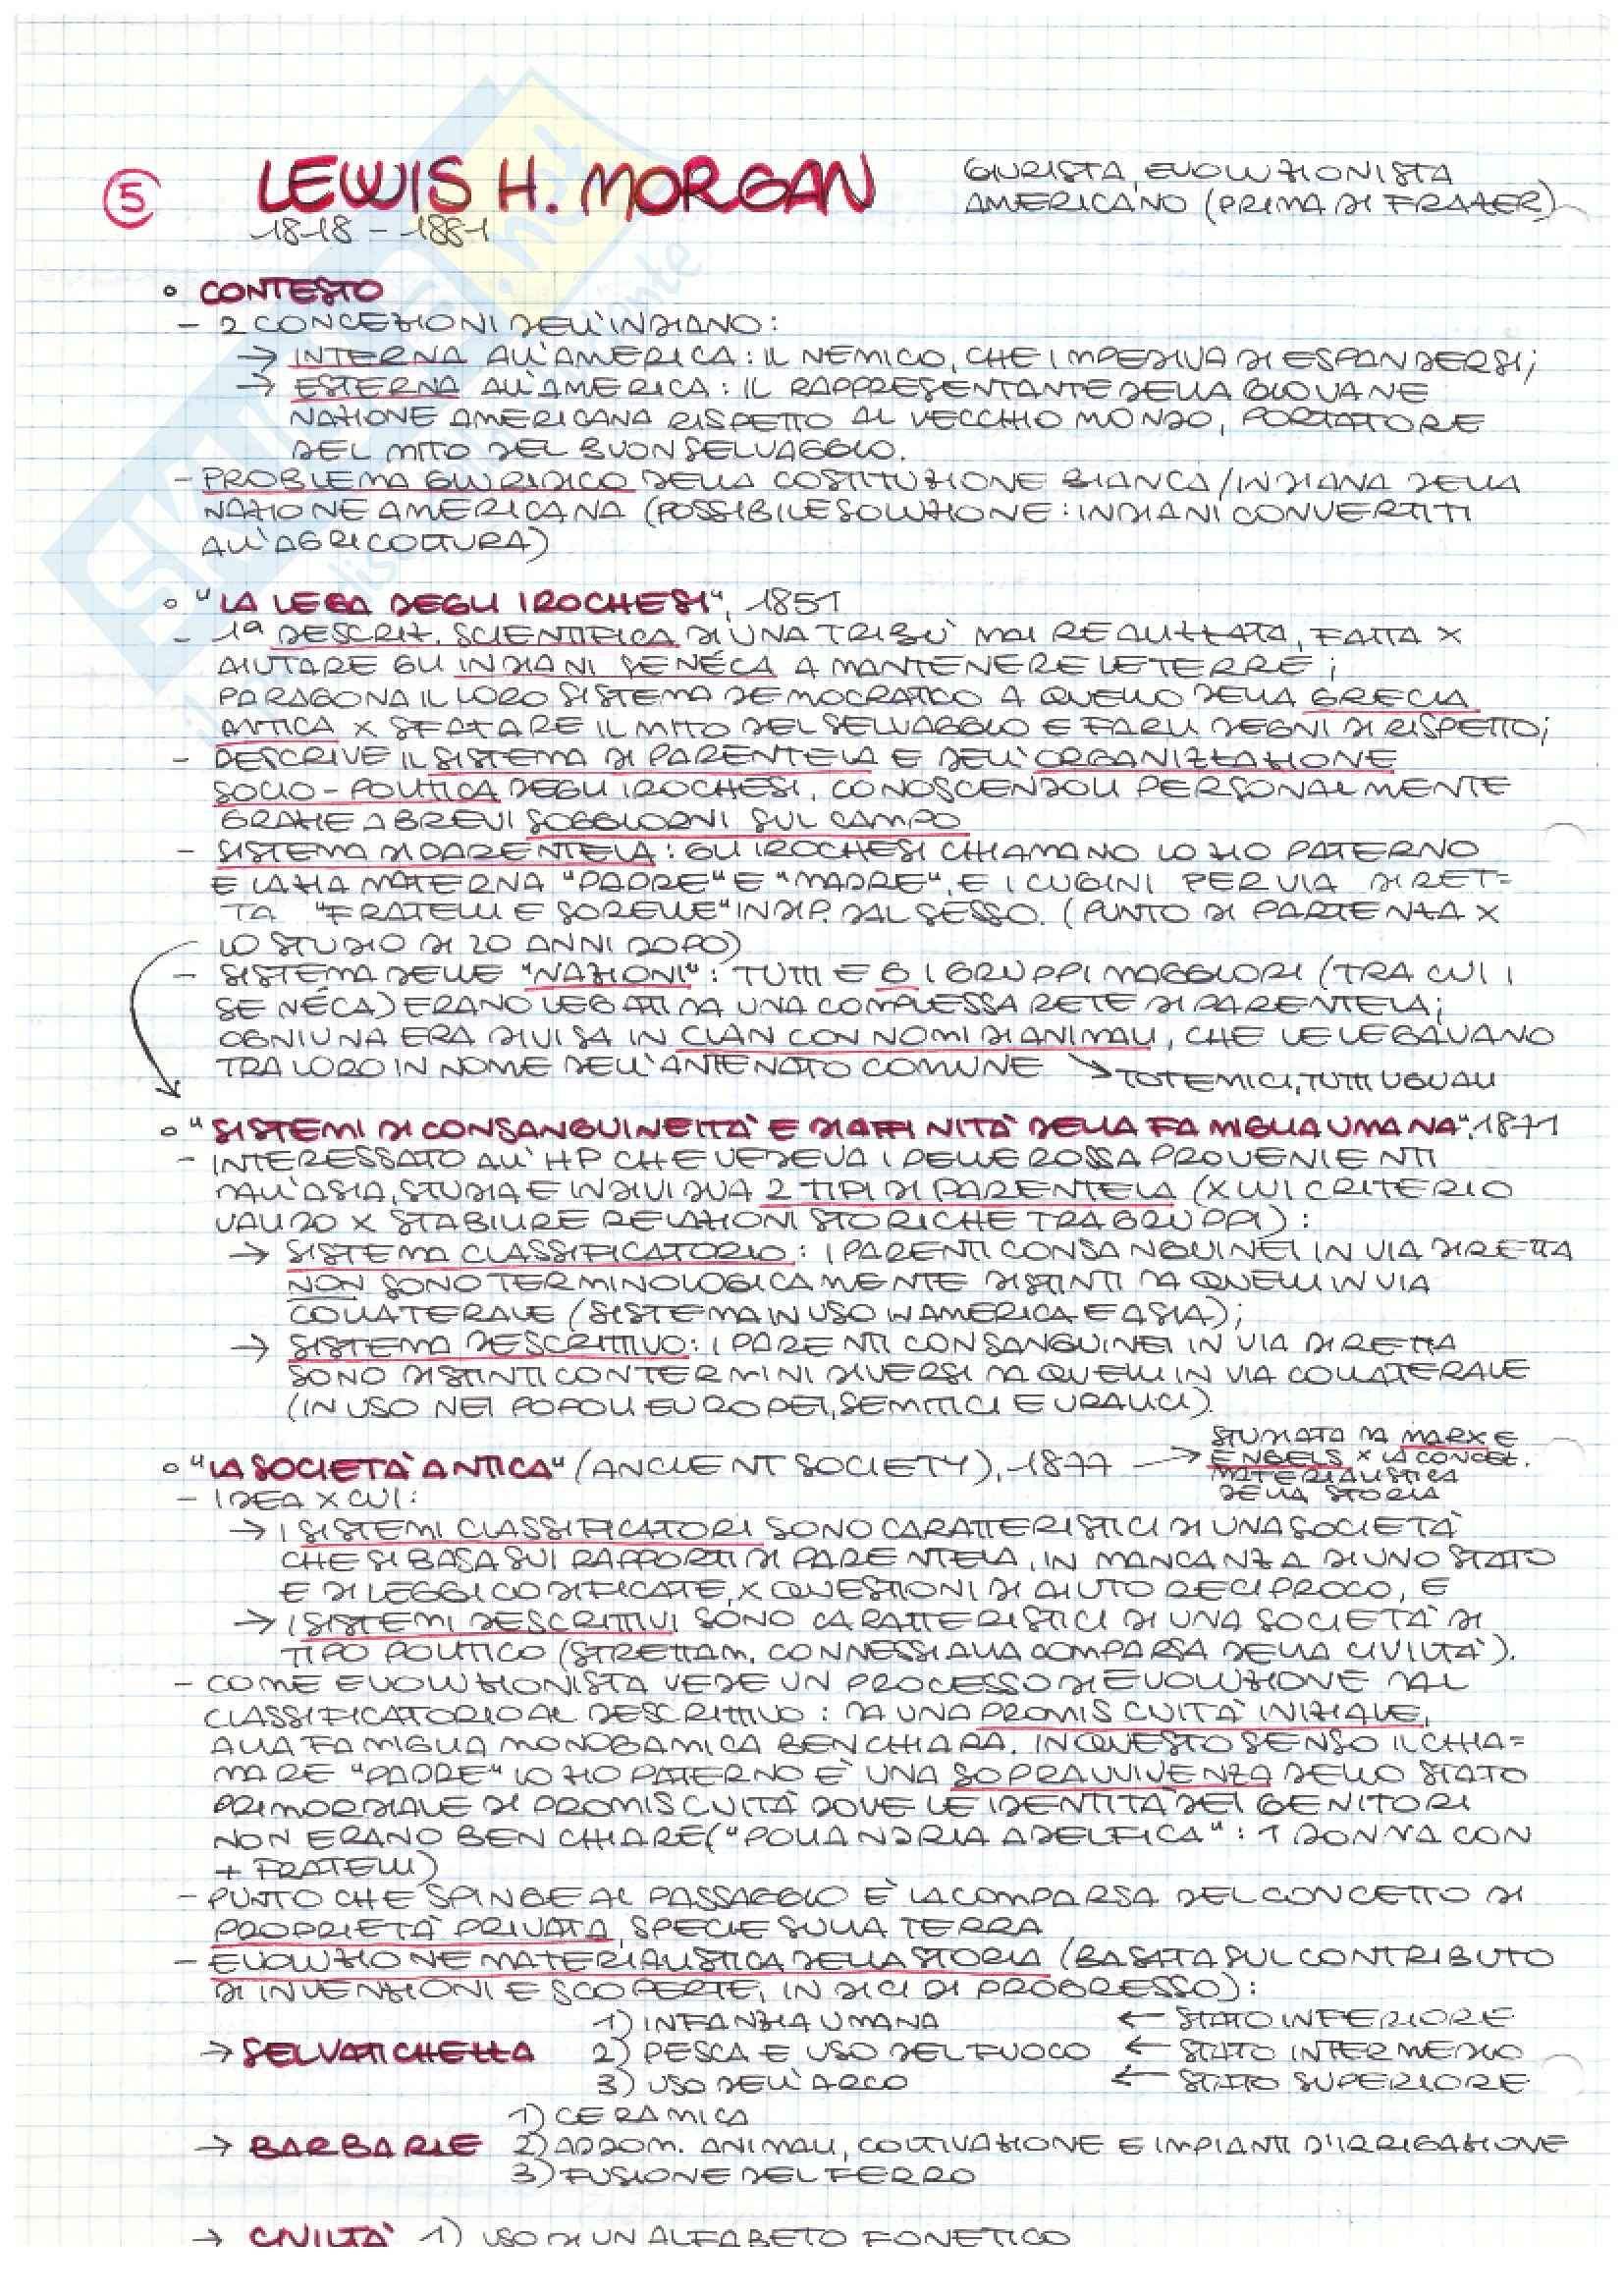 5 LEWIS H. MORGAN
1818 - 1881
GIURISTA, EVOLUZIONISTA
AMERICANO (PRIMA DI FRAZER)
° CONTESTO
- 2 CONCEZIONI DELL'INDIANO:
→ INTERNA ALL'AMERICA: IL NEMICO, CHE IMPEDIVA DI ESPANDERSI;
→ ESTERNA ALL'AMERICA: IL RAPPRESENTANTE DELLA GIOVANE
NAZIONE AMERICANA RISPETTO AL VECCHIO MONDO, PORTATORE
DEL MITO DEL BUON SELVAGGIO.
- PROBLEMA GIURIDICO DELLA COSTITUZIONE BIANCA/INDIANA DELLA
NAZIONE AMERICANA (POSSIBILE SOLUZIONE: INDIANI CONVERTITI
ALL'AGRICOLTURA)
° "LA LEGA DEGLI IROCHESI", 1851
- 1ª DESCRIZ. SCIENTIFICA DI UNA TRIBÙ MAI REALIZZATA, FATTA X
AIUTARE GLI INDIANI SENÉCA A MANTENERE LE TERRE;
PARAGONA IL LORO SISTEMA DEMOCRATICO A QUELLO DELLA GRECIA
ANTICA X SFATARE IL MITO DEL SELVAGGIO E FARLI DEGNI DI RISPETTO;
- DESCRIVE IL SISTEMA DI PARENTELA E DELL'ORGANIZZAZIONE
SOCIO-POLITICA DEGLI IROCHESI, CONOSCENDOLI PERSONALMENTE
GRAZIE A BREVI SOGGIORNI SUL CAMPO
- SISTEMA DI PARENTELA: GLI IROCHESI CHIAMANO LO ZIO PATERNO
E LA ZIA MATERNA "PADRE" E "MADRE", E I CUGINI PER VIA DIRET=
TA "FRATELLI E SORELLE" INDIP. DAL SESSO. (PUNTO DI PARTENZA X
LO STUDIO DI 20 ANNI DOPO)
- SISTEMA DELLE "NAZIONI": TUTTI E 6 I GRUPPI MAGGIORI (TRA CUI I
SENÉCA) ERANO LEGATI DA UNA COMPLESSA RETE DI PARENTELA;
OGNIUNA ERA DIVISA IN CLAN CON NOMI DI ANIMALI, CHE LE LEGAVANO
TRA LORO IN NOME DELL'ANTENATO COMUNE ↘ TOTEMICI, TUTTI UGUALI
° "SISTEMI DI CONSANGUINEITÀ E DI AFFINITÀ DELLA FAMIGLIA UMANA", 1871
- INTERESSATO ALL'HP CHE VEDEVA I PELLEROSSA PROVENIENTI
DALL'ASIA, STUDIA E INDIVIDUA 2 TIPI DI PARENTELA (X LUI CRITERIO
VALIDO X STABILIRE RELAZIONI STORICHE TRA GRUPPI):
→ SISTEMA CLASSIFICATORIO: I PARENTI CONSANGUINEI IN VIA DIRETTA
NON SONO TERMINOLOGICAMENTE DISTINTI DA QUELLI IN VIA
COLLATERALE (SISTEMA IN USO IN AMERICA E ASIA);
→ SISTEMA DESCRITTIVO: I PARENTI CONSANGUINEI IN VIA DIRETTA
SONO DISTINTI CON TERMINI DIVERSI DA QUELLI IN VIA COLLATERALE
(IN USO NEI POPOLI EUROPEI, SEMITICI E URALICI).
° "LA SOCIETÀ ANTICA" (ANCIENT SOCIETY), 1877 → STUDIATA DA MARX E
ENGELS X LA CONCEZ.
MATERIALISTICA
DELLA STORIA
- IDEA X CUI:
→ I SISTEMI CLASSIFICATORI SONO CARATTERISTICI DI UNA SOCIETÀ
CHE SI BASA SUI RAPPORTI DI PARENTELA, IN MANCANZA DI UNO STATO
E DI LEGGI CODIFICATE, X QUESTIONI DI AIUTO RECIPROCO, E
→ I SISTEMI DESCRITTIVI SONO CARATTERISTICI DI UNA SOCIETÀ DI
TIPO POLITICO (STRETTAM. CONNESSI ALLA COMPARSA DELLA CIVILTÀ).
- COME EVOLUZIONISTA VEDE UN PROCESSO DI EVOLUZIONE DAL
CLASSIFICATORIO AL DESCRITTIVO: DA UNA PROMISCUITÀ INIZIALE,
ALLA FAMIGLIA MONOGAMICA BEN CHIARA. IN QUESTO SENSO IL CHIA=
MARE "PADRE" LO ZIO PATERNO È UNA SOPRAVVIVENZA DELLO STATO
PRIMORDIALE DI PROMISCUITÀ DOVE LE IDENTITÀ DEI GENITORI
NON ERANO BEN CHIARE ("POLIANDRIA ADELFICA": 1 DONNA CON
+ FRATELLI)
- PUNTO CHE SPINGE AL PASSAGGIO È LA COMPARSA DEL CONCETTO DI
PROPRIETÀ PRIVATA, SPECIE SULLA TERRA
- EVOLUZIONE MATERIALISTICA DELLA STORIA (BASATA SUL CONTRIBUTO
DI INVENZIONI E SCOPERTE, INDICI DI PROGRESSO):
1) INFANZIA UMANA ← STATO INFERIORE
→ SELVATICHEZZA 2) PESCA E USO DEL FUOCO ← STATO INTERMEDIO
3) USO DELL'ARCO ← STATO SUPERIORE
1) CERAMICA
→ BARBARIE 2) ADDOM. ANIMALI, COLTIVAZIONE E IMPIANTI D'IRRIGAZIONE
3) FUSIONE DEL FERRO
→ CIVILTÀ 1) USO DI UN ALFABETO FONETICO